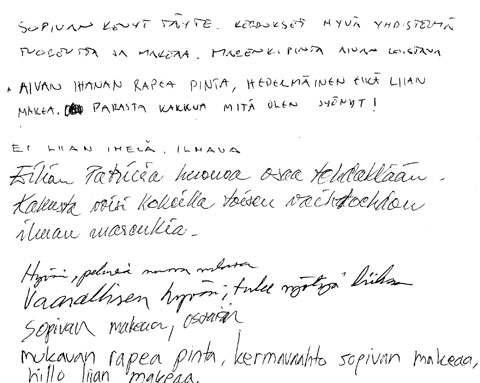 SOPIVAN KEVYT TÄYTE. KERROKSET HYVÄ YHDISTELMÄ
TUOREUTTA JA MAKEAA. MARENKIPINTA AIVAN LOISTAVA
AIVAN IHANAN RAPEA PINTA, HEDELMÄINEN EIKÄ LIIAN
MAKEA. PARASTA KAKKUA MITÄ OLEN SYÖNYT!
EI LIIAN IMELÄ. ILMAVA
Eihän Patricia huonoa osaa tehdäkkään.
Kakusta voisi kokeilla toisen vaihtoehdon
ilman marenkia.
Hyvää, pehmeä
Vaarallisen hyvää; tulee syötyä liikaa
Sopivan makeaa,
mukavan rapea pinta, kermavaahto sopivan makeaa,
hillo liian makeaa.